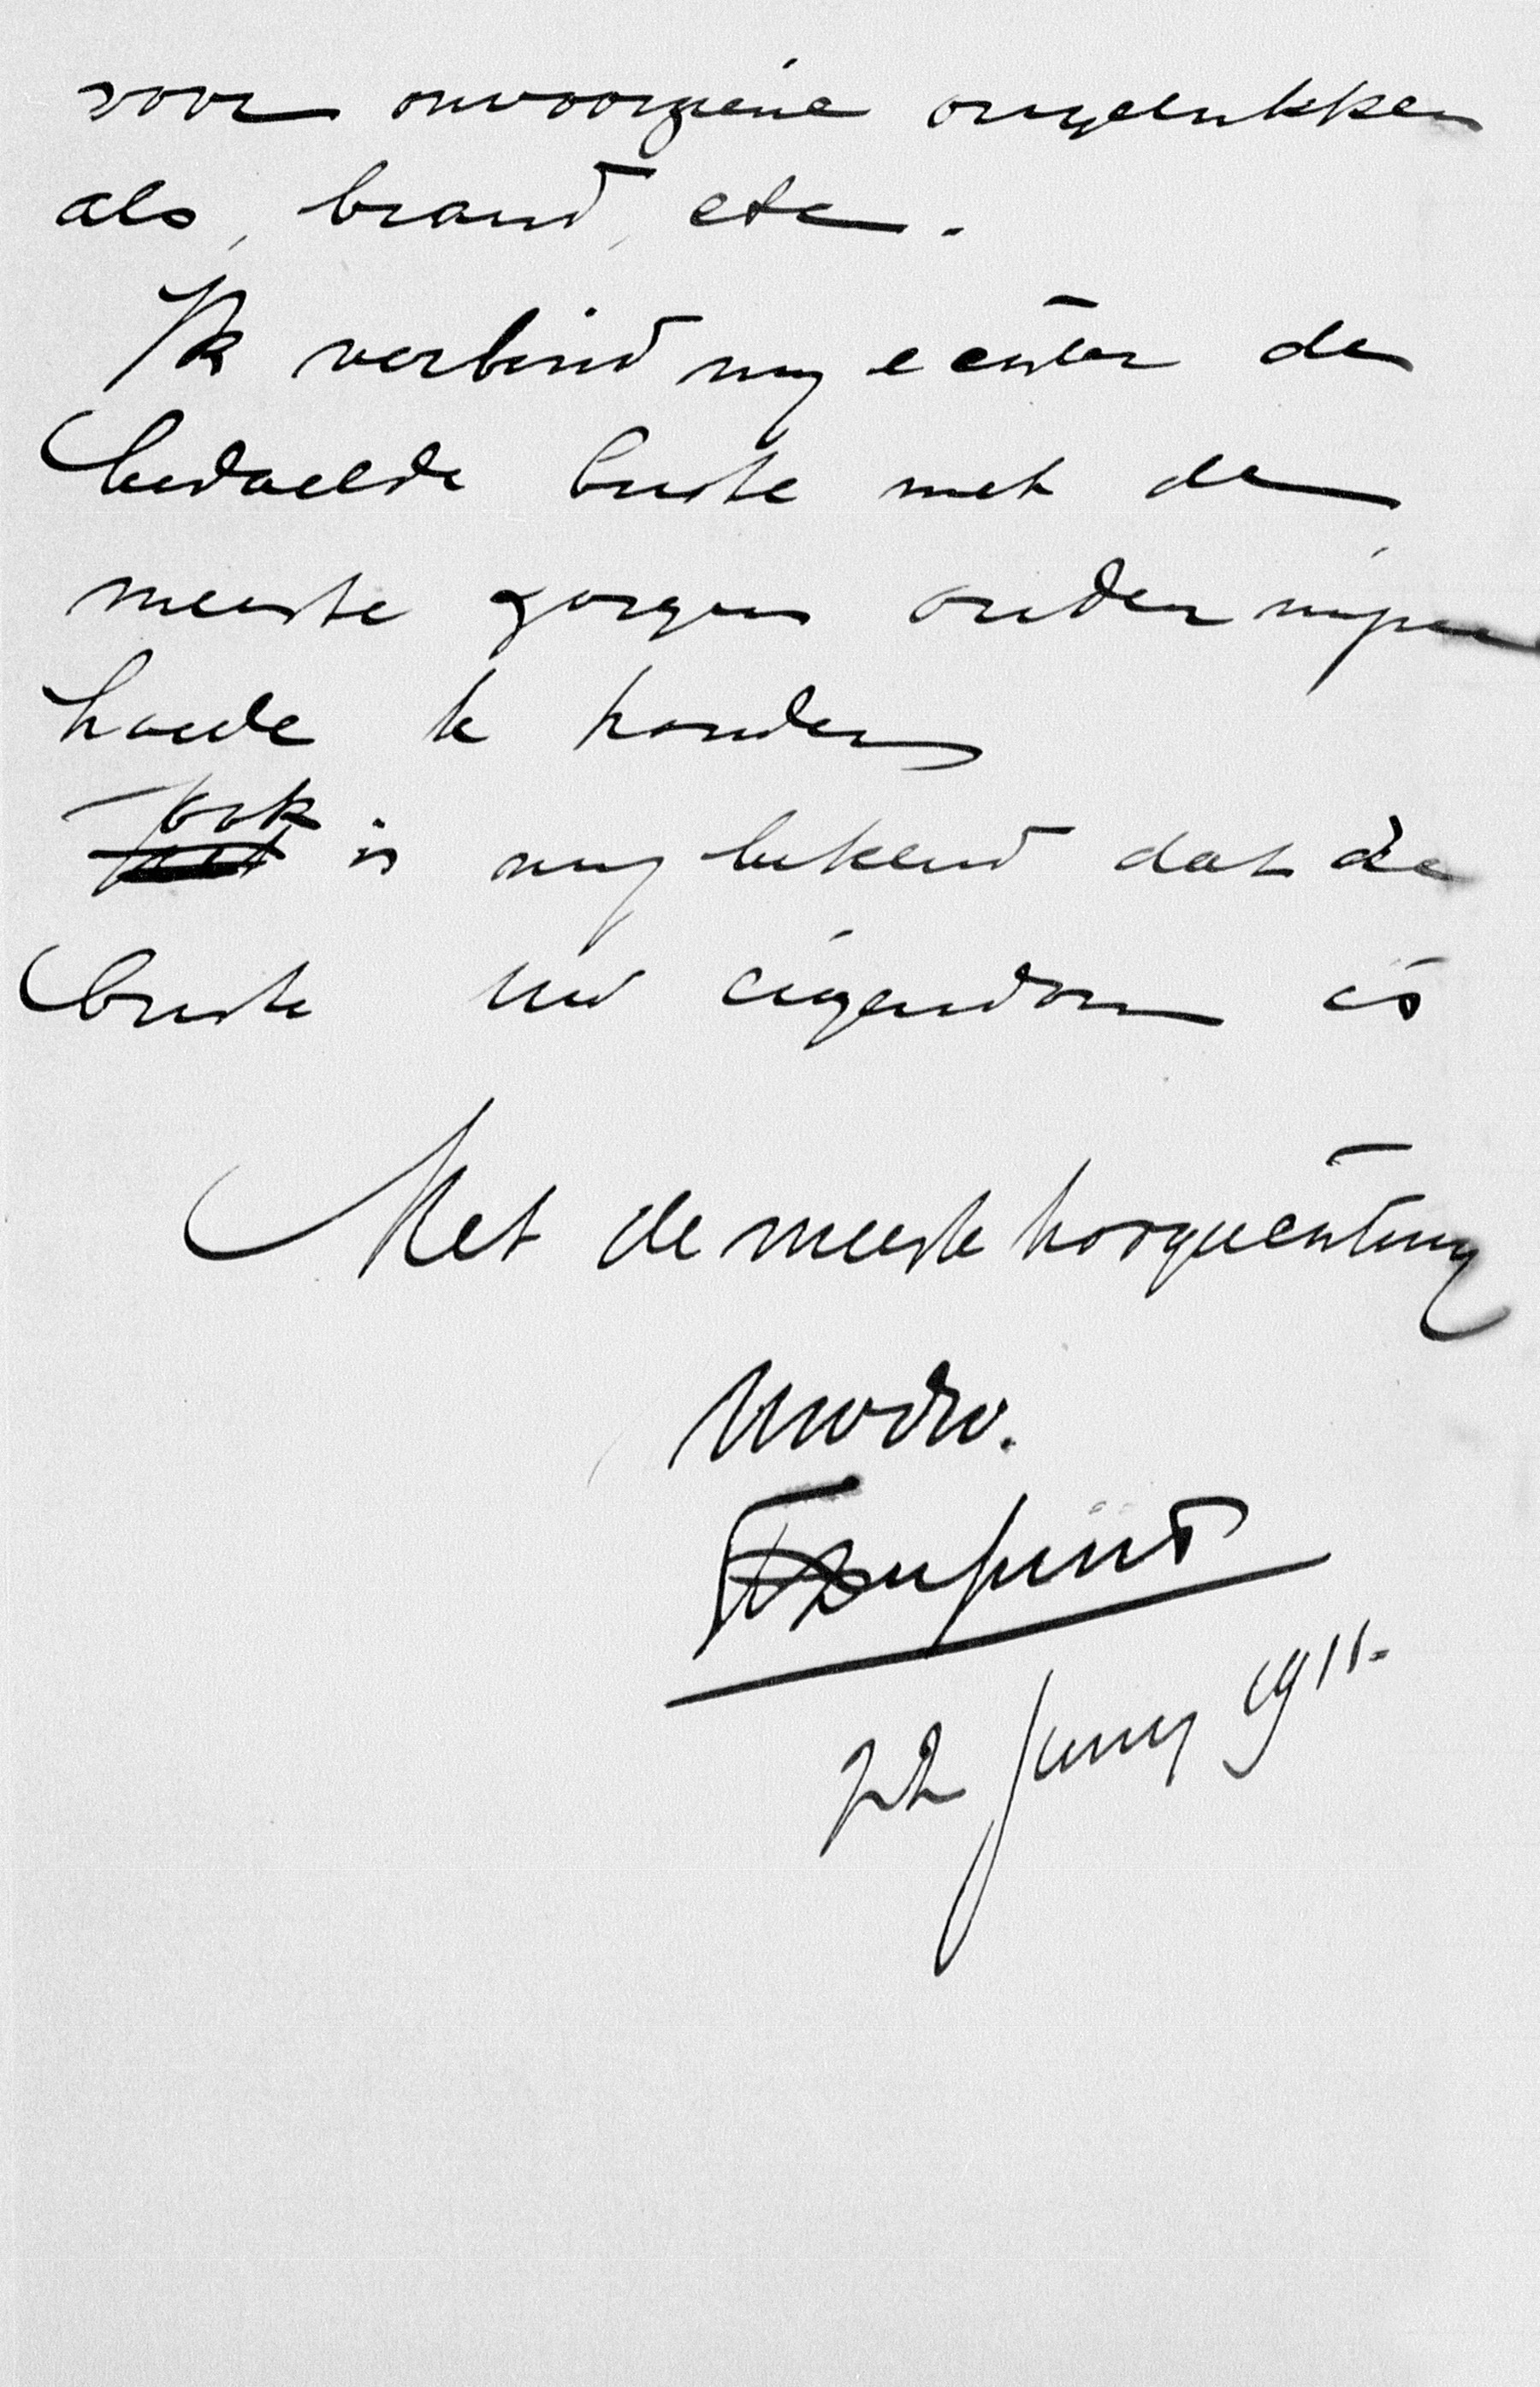 voor onvoorziene ongelukken
als, brand, etc.
Ik verbind my echter de
bedoelde buste met de
meeste zorgen onder mijne
hoede te houden
ook is my bekend dat de
buste uw eigendom is
Met de meeste hoogachting
Uwdw.
22 Juny 1911.